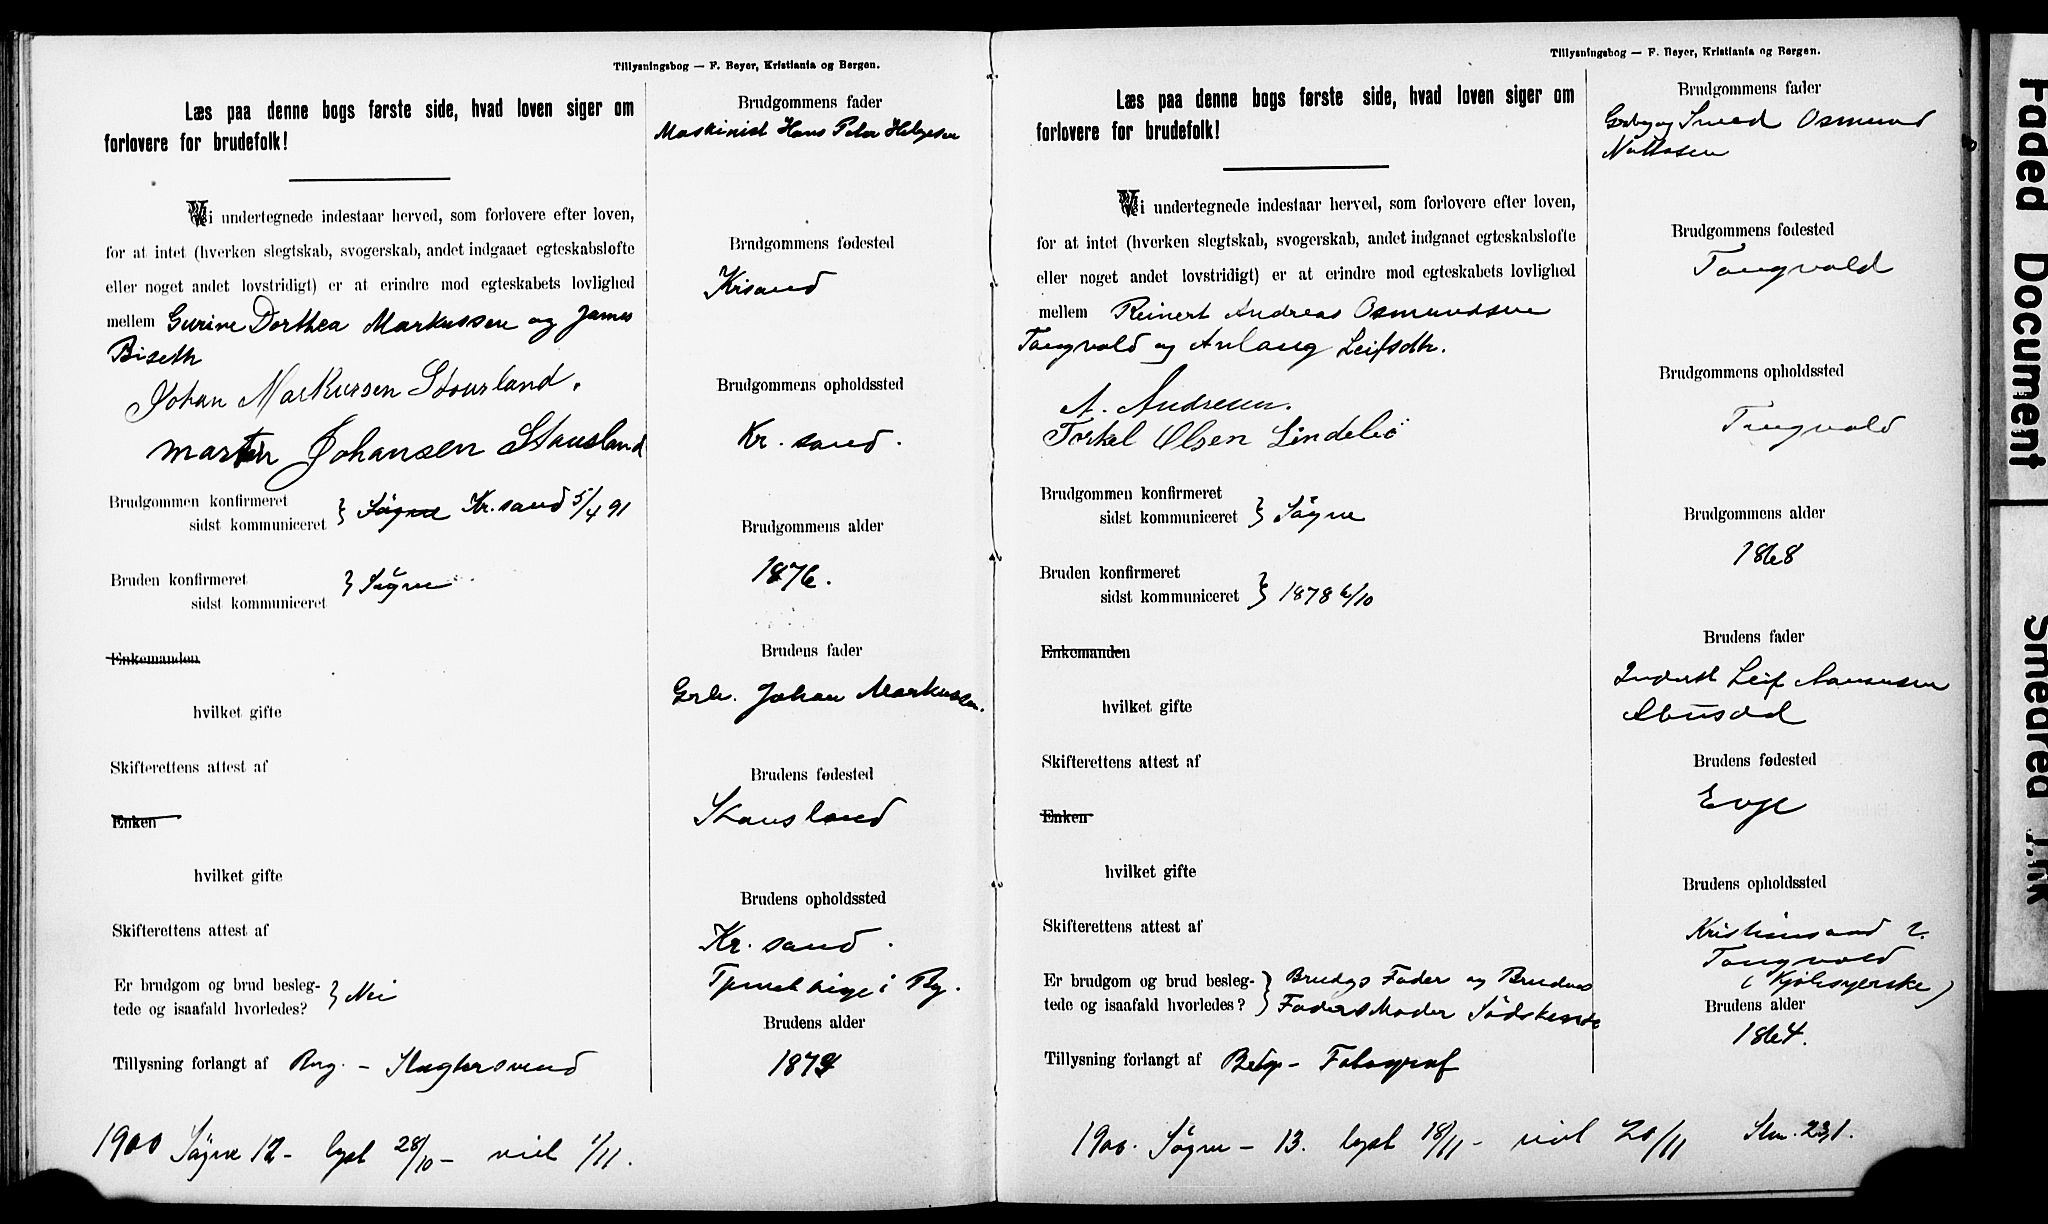 Tillysningsbog — F. Beyer, Kristiania og Bergen.
Læs paa denne bogs første side, hvad loven siger om
forlovere for brudefolk!
Vi undertegnede indestaar herved, som forlovere efter loven,
for at intet (hverken slegtskab, svogerskab, andet indgaaet egteskabsløfte
eller noget andet lovstridigt) er at erindre mod egteskabets lovlighed
mellem Gurine Dorthea Markussen og James
Biseth
Johan Markussen Stousland.
Martin Johansen Stausland
Brudgommen konfirmeret
sidst kommuniceret } Søgne Kr.sand 5/4 91
Bruden konfirmeret
sidst kommuniceret } Søgne
Enkemanden
hvilket gifte
Skifterettens attest af
Enken
hvilket gifte
Skifterettens attest af
Er brudgom og brud besleg-
tede og isaafald hvorledes? } Nei
Tillysning forlangt af Brg. – Slagtersvend
Brudgommens fader
Maskinist Hans Peter Helgesen
Brudgommens fødested
Krsand
Brudgommens opholdssted
Kr. sand.
Brudgommens alder
1876.
Brudens fader
Grbr. Johan Markussen.
Brudens fødested
Stausland
Brudens opholdssted
Kr. sand.
i By.
Brudens alder
1874
1900 Søgne 12 – lyst 28/10 – viet 1/11.
Tillysningsbog — F. Beyer, Kristiania og Bergen.
Læs paa denne bogs første side, hvad loven siger om
forlovere for brudefolk!
Vi undertegnede indestaar herved, som forlovere efter loven,
for at intet (hverken slegtskab, svogerskab, andet indgaaet egteskabsløfte
eller noget andet lovstridigt) er at erindre mod egteskabets lovlighed
mellem Reinert Andreas Osmundsen
Tangvald og Anlaug Leifsdtr.
A. Andresen.
Torkel Olsen Lindelid
Brudgommen konfirmeret
sidst kommuniceret } Søgne
Bruden konfirmeret
sidst kommuniceret } 1878 6/10
Enkemanden
hvilket gifte
Skifterettens attest af
Enken
hvilket gifte
Skifterettens attest af
Er brudgom og brud besleg-
tede og isaafald hvorledes? } Brudgs Fader og Brudens
Faders Moder Södskende
Tillysning forlangt af Brdg – Fotograf
Brudgommens fader
Grbr og Smed Osmund
Nottosen
Brudgommens fødested
Tangvald
Brudgommens opholdssted
Tangvald
Brudgommens alder
1868
Brudens fader
Inderst Leif Aanensen
Abusdal
Brudens fødested
Evje
Brudens opholdssted
Kristiansand
Tangvald
(Kjolesyerske)
Brudens alder
1864.
1900. Søgne – 13. lyst 18/11 – viet 20/11 Stm. 231.
Faded Document
Smeared Ink